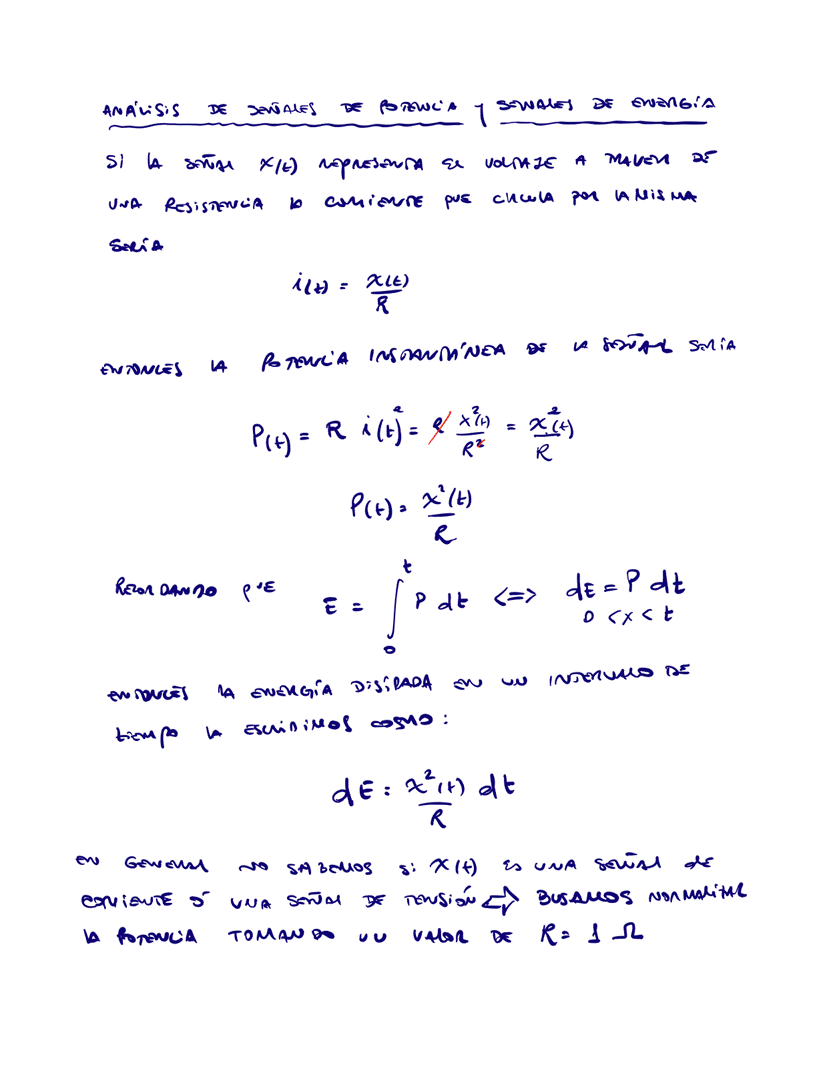 ANÁLISIS DE SEÑALES DE POTENCIA y SEÑALES DE ENERGÍA
SI LA SEÑAL x(t) REPRESENTA EL VOLTAJE A TRAVES DE
UNA RESISTENCIA LA CORRIENTE QUE CIRCULA POR LA MISMA
SERÍA
i(t) = x(t)/R
ENTONCES LA POTENCIA INSTANTÁNEA DE LA SEÑAL SERÍA
P(t) = R i(t)² = R x²(t)/R² = x²(t)/R
P(t) = x²(t)/R
RECORDANDO QUE E = ∫₀ᵗ P dt <=> dE = P dt
0 < x < t
ENTONCES LA ENERGÍA DISIPADA EN UN INTERVALO DE
tiempo LA ESCRIBIMOS COMO:
dE = x²(t)/R dt
EN GENERAL NO SABEMOS Si x(t) ES UNA SEÑAL de
CORRIENTE Ó UNA SEÑAL DE TENSIÓN ⇨ BUSCAMOS NORMALIZAR
LA POTENCIA TOMANDO UN VALOR DE R = 1 Ω